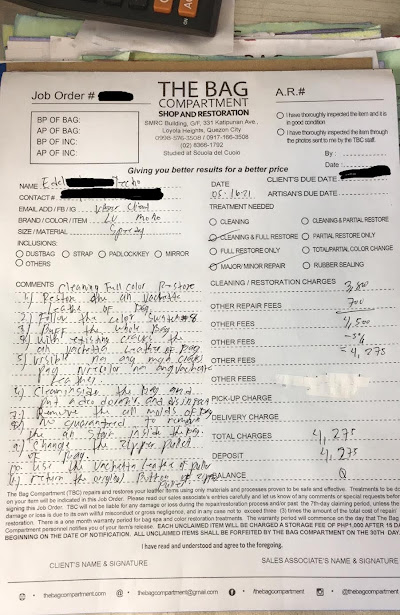 Job Order #
THE BAG
COMPARTMENT
SHOP AND RESTORATION
SMRC Building, G/F, 331 Katipunan Ave.,
Loyola Heights, Quezon City
0998-576-3508 / 0917-166-3508
(02) 8366-1792
Studied at Scuola del Cuoio
A.R.#
BP OF BAG:
AP OF BAG:
BP OF INC:
AP OF INC:
I have thoroughly inspected the item and it is
in good condition
I have thoroughly inspected the item through
the photos sent to me by the TBC staff.
By :
Date :
Giving you better results for a better price
NAME
CONTACT #
EMAIL ADD/FB/IG Viber Client
BRAND/COLOR/ITEM LV mono
SIZE/MATERIAL Speedy
INCLUSIONS:
DUSTBAG STRAP PADLOCK/KEY MIRROR
OTHERS
DATE 05-16-21
CLIENT'S DUE DATE
ARTISAN'S DUE DATE
TREATMENT NEEDED
CLEANING CLEANING & PARTIAL RESTORE
CLEANING & FULL RESTORE PARTIAL RESTORE ONLY
FULL RESTORE ONLY TOTAL/PARTIAL COLOR CHANGE
MAJOR/MINOR REPAIR RUBBER SEALING
COMMENTS Cleaning Full Color Restore
1) Restore the all Vachetta
Leather of Bag
2) Follow the color swatch #8
3) Buff the whole Bag
4) With existing cracks the
all vachetta Leather of Bag
5) Visible
leather
Clean inside the bag and
7) Remove the all molds of Bag
8) No guaranteed to remove
the all stain inside the bag.
9) Change the zipper puller
of Bag.
10) Use the Vachetta Leather of puller
11) Return the original
CLEANING / RESTORATION CHARGES 3,800
OTHER REPAIR FEES 700
OTHER FEES 4,500
OTHER FEES -5%
OTHER FEES 4,275
OTHER FEES
PICK-UP CHARGE
DELIVERY CHARGE
TOTAL CHARGES 4,275
DEPOSIT 4,275
BALANCE 0
The Bag Compartment (TBC) repairs and restores your leather item using only materials and processes proven to be safe and effective. Treatments to be do
on your item will be indicated in this Job Order. Please read our sales associate's entries carefully and let us know of any comments or special requests befor
signing this Job Order. TBC will not be liable for any damage or loss during the repair/restoration process and/or past the 7th-day claiming period, unless the
damage or loss is due to its own willful misconduct or gross negligence, and in any case not to exceed three (3) times the amount of the total cost of repair/
restoration. There is a one month warranty period for bag spa and color restoration treatments. The warranty period will commence on the day that The Bag
Compartment personnel notifies you of your item's release. EACH UNCLAIMED ITEM WILL BE CHARGED A STORAGE FEE OF PHP1,000 AFTER 15 D
BEGINNING ON THE DATE OF NOTIFICATION. ALL UNCLAIMED ITEMS SHALL BE FORFEITED BY THE BAG COMPARTMENT ON THE 30TH DAY.
I have read and understood and agree to the foregoing.
CLIENT'S NAME & SIGNATURE
SALES ASSOCIATE'S NAME & SIGNATURE
thebagcompartment.com thebagcompartment@gmail.com thebagcompartment @thebagcompartment